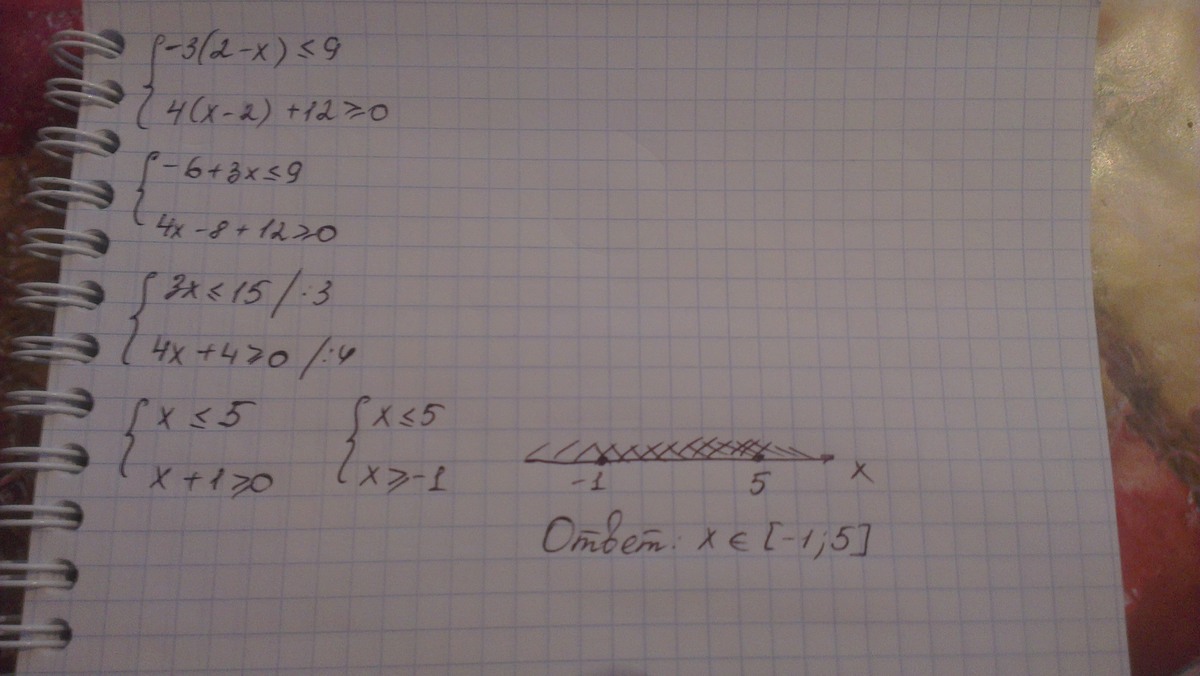 {-3(2-x) ≤ 9
4(x-2) +12 ≥ 0
{-6+3x ≤ 9
4x-8+12 ≥ 0
{3x ≤ 15 /:3
4x+4 ≥ 0 /:4
{x ≤ 5 {x ≤ 5
x+1 ≥ 0 x ≥ -1
-1 5 x
Ответ: x ∈ [-1;5]